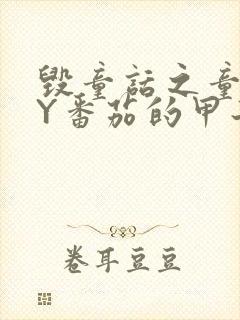 毁童话之童
Y番茄的甲
卷耳豆豆